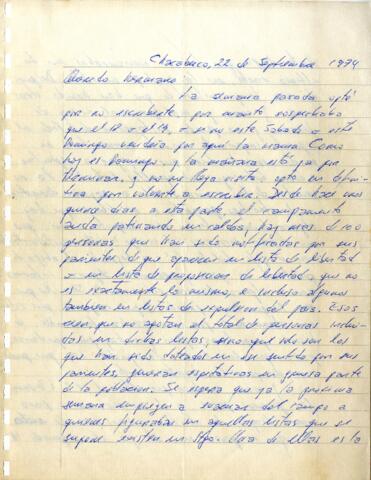 Chacabuco, 22 de Septiembre 1974
Querido hermano
La semana pasada opté
por no escribirte, por cuanto sospechaba
que el 18 o el 19, o si no este Sábado o este
Domingo vendría por aquí la mamá. Como
hoy es Domingo, y la mañana está ya por
terminar, y no me llega visita opto en defini-
tiva por volverte a escribir. Desde hace unos
quince días a esta parte, el campamento
anda de cabeza, hay mas de 100
personas que han sido notificadas por sus
parientes de que aparecen en lista de libertad
o en lista de proposición de libertad, que no
es exactamente lo mismo, e incluso algunos
tambien en listas de expulsión del país. Esos
creo, que no agotan el total de personas inclui-
das en dichas listas, sino que solo son los
que han sido en ese sentido por sus
parientes, generan espectativas en gruesa parte
de la población. Se espera que ya la proxima
semana empiecen a sacar del campo a
quienes figuraban en aquellas listas que se
supone existen en Stgo. Una de ellas es la